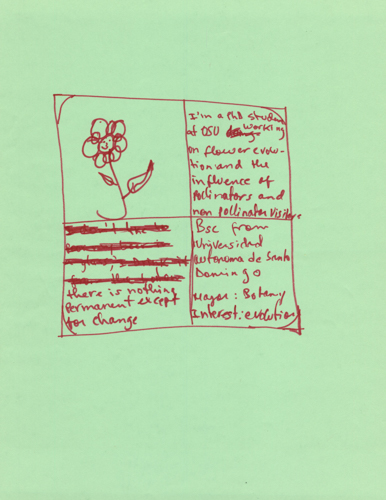 I'm a PhD student
at OSU working
on flower evolu-
tion and the
influence of
Pollinators and
non pollinator visitors
there is nothing
permanent except
for change
Bsc from
Universidad
Autonoma de Santo
Domingo
Mayor: Botany
Interest: evolution